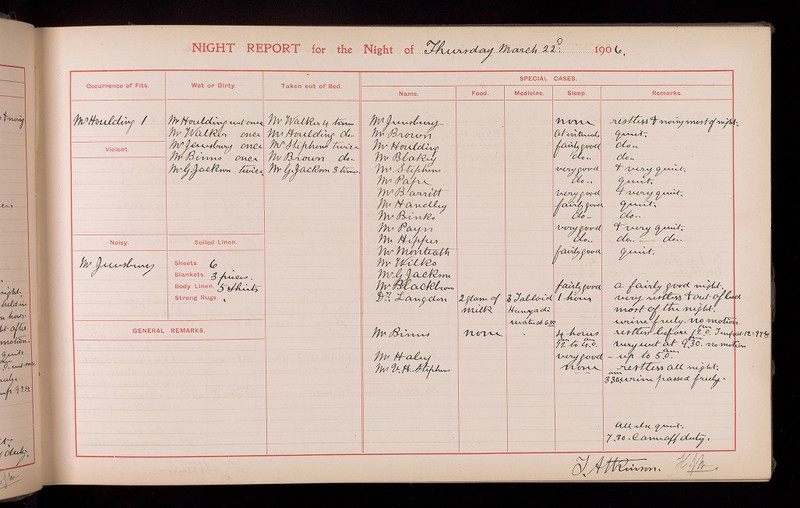 NIGHT REPORT for the Night of Thursday March 22º 1906.
Occurrence of Fits.
Wet or Dirty.
Taken out of Bed.
SPECIAL CASES.
Name.
Food.
Medicine.
Sleep.
Remarks.
Mr Houlding 1
Mr Houlding wet once
Mr Walker once
Mr Jewsbury once
Mr Binns once
Mr G. Jackson twice
Mr Walker 4 times
Mr Houlding do..
Mr Stephens twice
Mr Brown do..
Mr G. Jackson 3 times
Violent.
Noisy.
Mr Jewsbury
Soiled Linen.
Sheets. 6
Blankets. 3 pieces.
Body Linen. 5 shirts
Strong Rugs.
GENERAL REMARKS.
Mr Jewsbury none restless & noisy most of night.
Mr Brown at intervals quiet.
Mr Houlding fairly good do..
Mr Blakey do.. do..
Mr Stephens very good & very quiet.
Mr Pape do.. quiet.
Mr Barritt very good & very quiet.
Mr Handley fairly good quiet.
Mr Binks do.. do..
Mr Payn very good & very quiet.
Mr Hipper do.. do.. do..
Mr Monteath fairly good quiet.
Mr Wilks
Mr G. Jackson
Mr Blackburn fairly good a fairly good night.
Dr Langdon 2 glasses of milk 3 Tabloid Hunyadi water at 6.30 1 hour very restless & out of bed
most of the night.
urine freely. no motion.
Mr Binns none 4 hours restless before 12.0.
12 to 4.0. very wet at 9.30. no motion
Mr Haley very good - up to 5.0.
Mr V. H. Stephens none restless all night.
3.30 urine passed freely.
All else quiet.
7.30. Came off duty.
J. Atkinson.